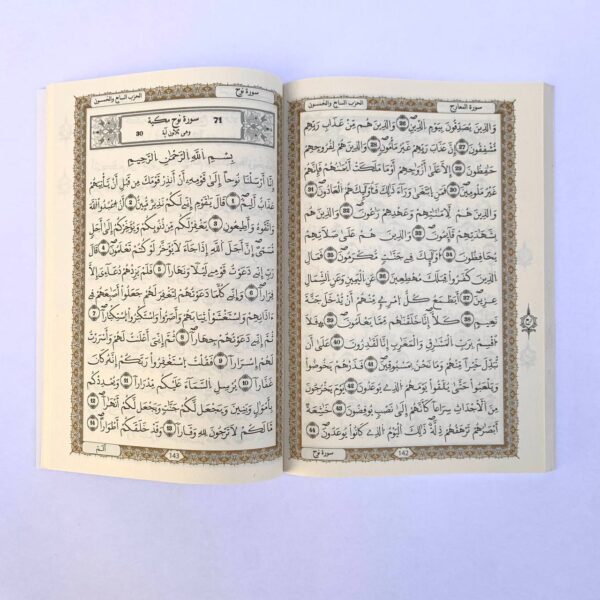 سورة المعارج
الحزب السابع والخمسون
وَالذِينَ يُصَدِّقُونَ بِيَوْمِ الدِّينِ 26 وَالذِينَ هُم مِّنْ عَذَابِ رَبِّهِم
مُّشْفِقُونَ 27 إِنَّ عَذَابَ رَبِّهِمْ غَيْرُ مَامُونٍ 28 وَالذِينَ هُمْ لِفُرُوجِهِمْ
حَٰفِظُونَ 29 إِلَّا عَلَىٰ أَزْوَٰجِهِمْ أَوْ مَا مَلَكَتَ اَيْمَٰنُهُمْ فَإِنَّهُمْ
غَيْرُ مَلُومِينَ 30 فَمَنِ اِبْتَغَىٰ وَرَآءَ ذَٰلِكَ فَأُوْلَٰئِكَ هُمُ الْعَادُونَ 31
وَالذِينَ هُمْ لِأَمَٰنَٰتِهِمْ وَعَهْدِهِمْ رَٰعُونَ 32 وَالذِينَ هُم
بِشَهَٰدَتِهِمْ قَآئِمُونَ 33 وَالذِينَ هُمْ عَلَىٰ صَلَاتِهِمْ
يُحَافِظُونَ 34 أُوْلَٰئِكَ فِي جَنَّٰتٍ مُّكْرَمُونَ 35 فَمَالِ
الذِينَ كَفَرُواْ قِبَلَكَ مُهْطِعِينَ 36 عَنِ الْيَمِينِ وَعَنِ الشِّمَالِ
عِزِينَ 37 أَيَطْمَعُ كُلُّ امْرِئٍ مِّنْهُمُ أَنْ يُّدْخَلَ جَنَّةَ
نَعِيمٍ 38 كَلَّا إِنَّا خَلَقْنَٰهُم مِّمَّا يَعْلَمُونَ 39 فَلَا
أُقْسِمُ بِرَبِّ الْمَشَٰرِقِ وَالْمَغَٰرِبِ إِنَّا لَقَٰدِرُونَ 40 عَلَىٰ أَن
نُّبَدِّلَ خَيْرًا مِّنْهُمْ وَمَا نَحْنُ بِمَسْبُوقِينَ 41 فَذَرْهُمْ يَخُوضُواْ
وَيَلْعَبُواْ حَتَّىٰ يُلَٰقُواْ يَوْمَهُمُ الذِي يُوعَدُونَ 42 يَوْمَ يَخْرُجُونَ
مِنَ الْأَجْدَاثِ سِرَاعًا كَأَنَّهُمْ إِلَىٰ نَصْبٍ يُوفِضُونَ 43 خَٰشِعَةً
أَبْصَٰرُهُمْ تَرْهَقُهُمْ ذِلَّةٌ ذَٰلِكَ الْيَوْمُ الذِي كَانُواْ يُوعَدُونَ 44
142
سورة نوح
سورة نوح
الحزب السابع والخمسون
71 سورة نوح مكية
وهي ثلاثون آية 30
بِسْمِ اللَّهِ الرَّحْمَٰنِ الرَّحِيمِ
إِنَّا أَرْسَلْنَا نُوحًا اِلَىٰ قَوْمِهِ أَنَ اَنذِرْ قَوْمَكَ مِن قَبْلِ أَنْ يَّاتِيَهُمْ
عَذَابٌ أَلِيمٌ 1 قَالَ يَٰقَوْمِ إِنِّي لَكُمْ نَذِيرٌ مُّبِينٌ 2 أَنُ اعْبُدُواْ اللَّهَ
وَاتَّقُوهُ وَأَطِيعُونِ 3 يَغْفِرْ لَكُم مِّن ذُنُوبِكُمْ وَيُوَخِّرْكُمُ إِلَىٰ أَجَلٍ
مُّسَمًّى اِنَّ أَجَلَ اللَّهِ إِذَا جَآءَ لَا يُوَخَّرُ لَوْ كُنتُمْ تَعْلَمُونَ 4 قَالَ
رَبِّ إِنِّي دَعَوْتُ قَوْمِي لَيْلًا وَنَهَارًا 5 فَلَمْ يَزِدْهُمْ دُعَآءِيَ إِلَّا
فِرَارًا 6 وَإِنِّي كُلَّمَا دَعَوْتُهُمْ لِتَغْفِرَ لَهُمْ جَعَلُواْ أَصَٰبِعَهُمْ فِي
ءَاذَانِهِمْ وَاسْتَغْشَوْاْ ثِيَابَهُمْ وَأَصَرُّواْ وَاسْتَكْبَرُواْ اسْتِكْبَارًا 7
ثُمَّ إِنِّي دَعَوْتُهُمْ جِهَارًا 8 ثُمَّ إِنِّيَ أَعْلَنتُ لَهُمْ وَأَسْرَرْتُ
لَهُمُ إِسْرَارًا 9 فَقُلْتُ اسْتَغْفِرُواْ رَبَّكُمُ إِنَّهُ كَانَ
غَفَّارًا 10 يُرْسِلِ السَّمَآءَ عَلَيْكُم مِّدْرَارًا 11 وَيُمْدِدْكُم
بِأَمْوَٰلٍ وَبَنِينَ وَيَجْعَل لَّكُمْ جَنَّٰتٍ وَيَجْعَل لَّكُمُ أَنْهَٰرًا 12
مَّا لَكُمْ لَا تَرْجُونَ لِلهِ وَقَارًا 13 وَقَدْ خَلَقَكُمُ أَطْوَارًا 14
143
أَلَمْ